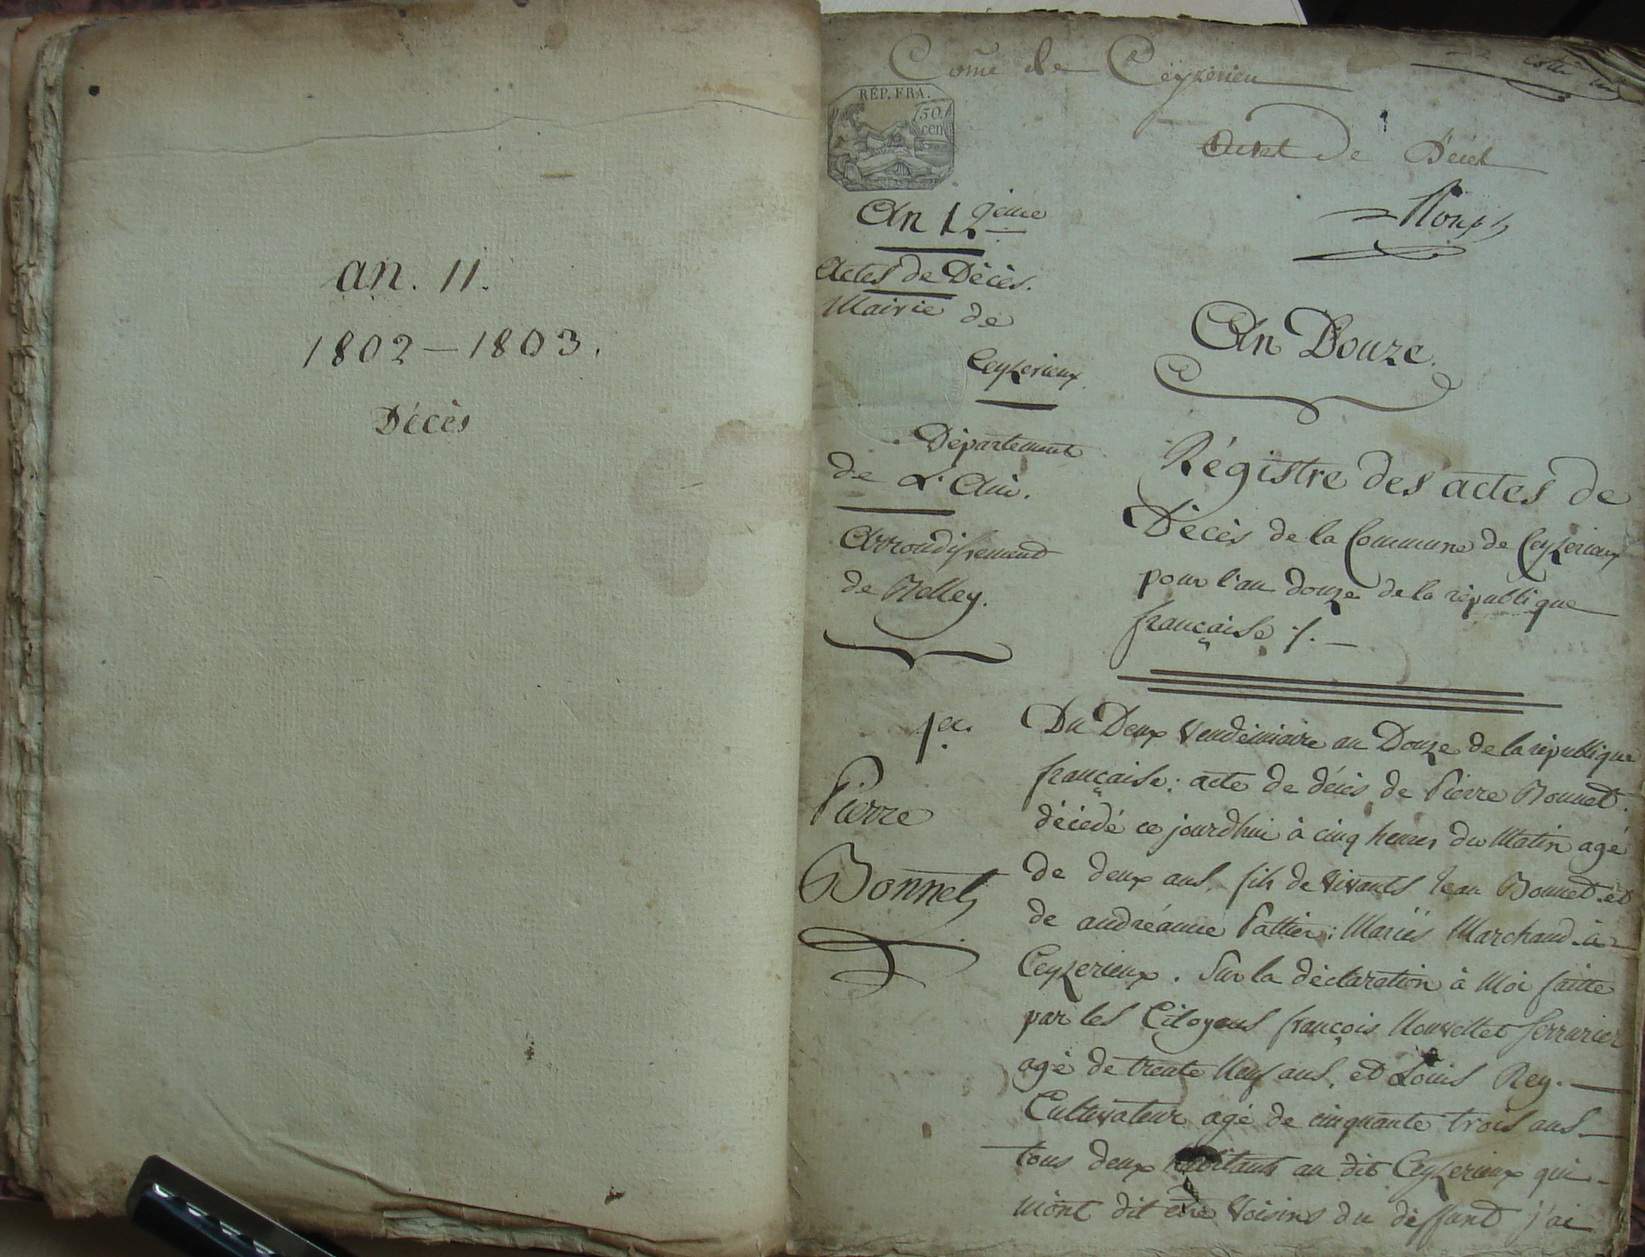 an. 11.
1802 – 1803.
Décès
Come de Ceyzerieu
RÉP. FRA.
50
cen
de Décès
An 12eme
Actes de Décès.
Mairie de
Ceyzerieux
Département
de L'Ain.
Arrondissement
de Belley.
An Douze.
Régistre des actes de
Décès de la Commune de Ceyzerieux
pour l'an douze de la république
française ./.
1er.
Pierre
Bonnet
Du Deux Vendémiaire an Douze de la république
française: acte de décès de Pierre Bonnet.
décédé ce jourdhui à cinq heures du Matin agé
de deux ans, fils de vivants Jean Bonnet et
de andréanne Pattier: Mariés Marchand à
Ceyzerieux. Sur la déclaration à Moi faitte
par les Citoyens françois serrurier
agé de trente Neuf ans, et Louis Rey.
Cultivateur agé de cinquante trois ans
tous deux habitants au dit Ceyzerieux qui
mont dit être Voisins du deffunt j'ai